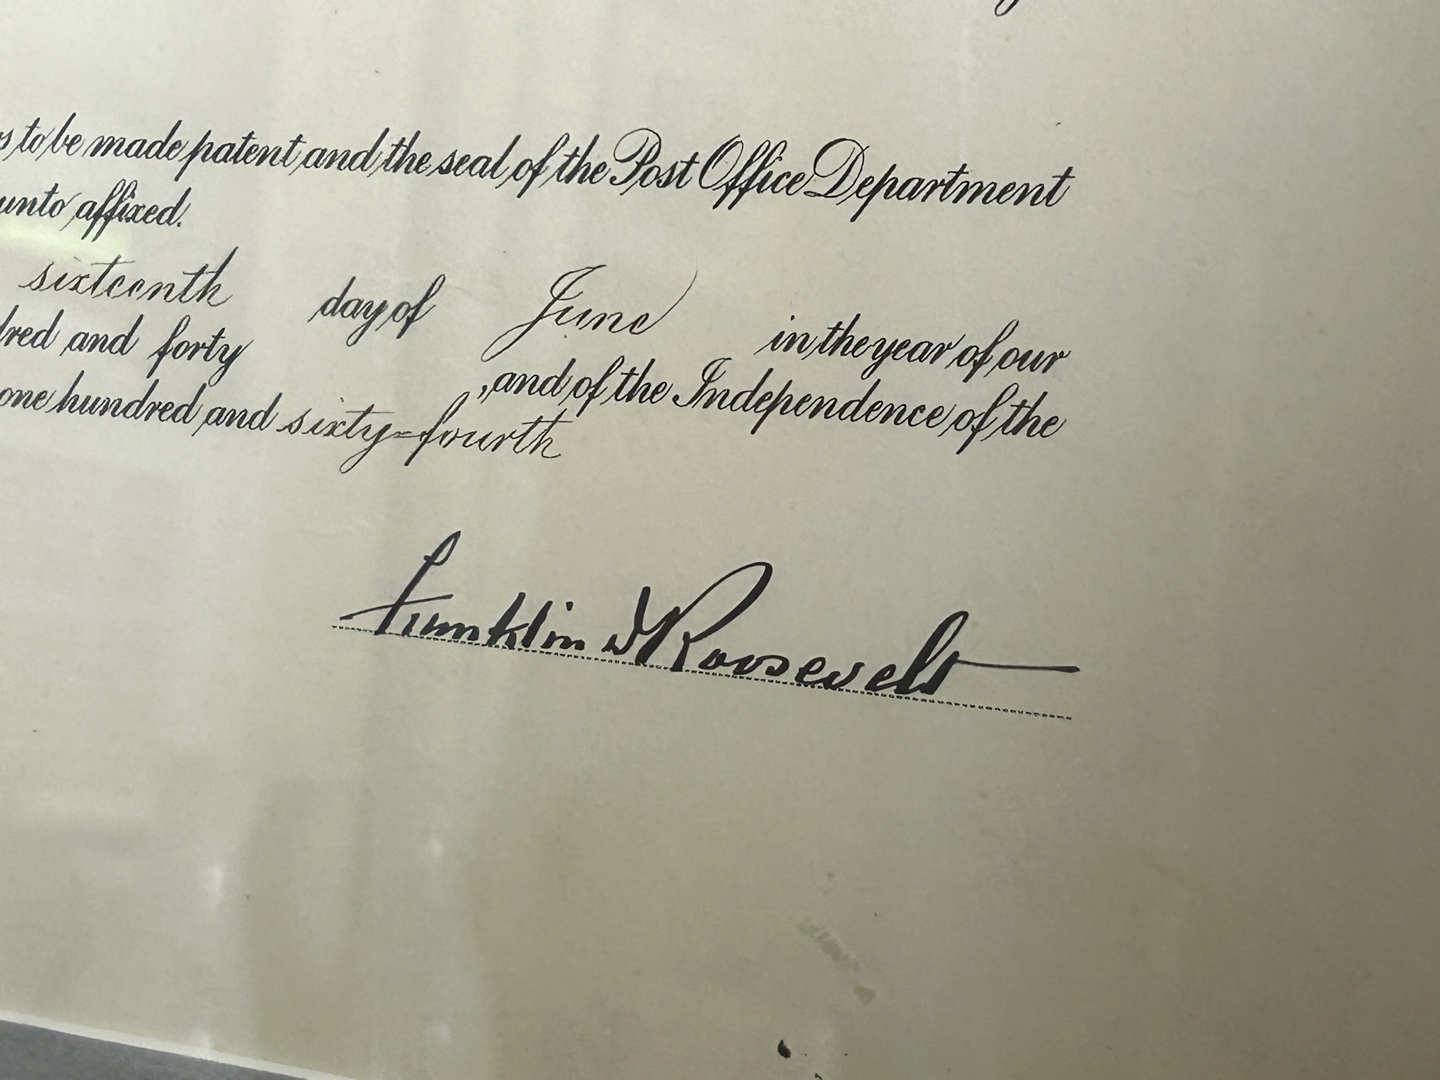 to be made patent and the seal of the Post Office Department
unto affixed.
sixteenth day of June in the year of our
dred and forty , and of the Independence of the
one hundred and sixty-fourth
Franklin D Roosevelt